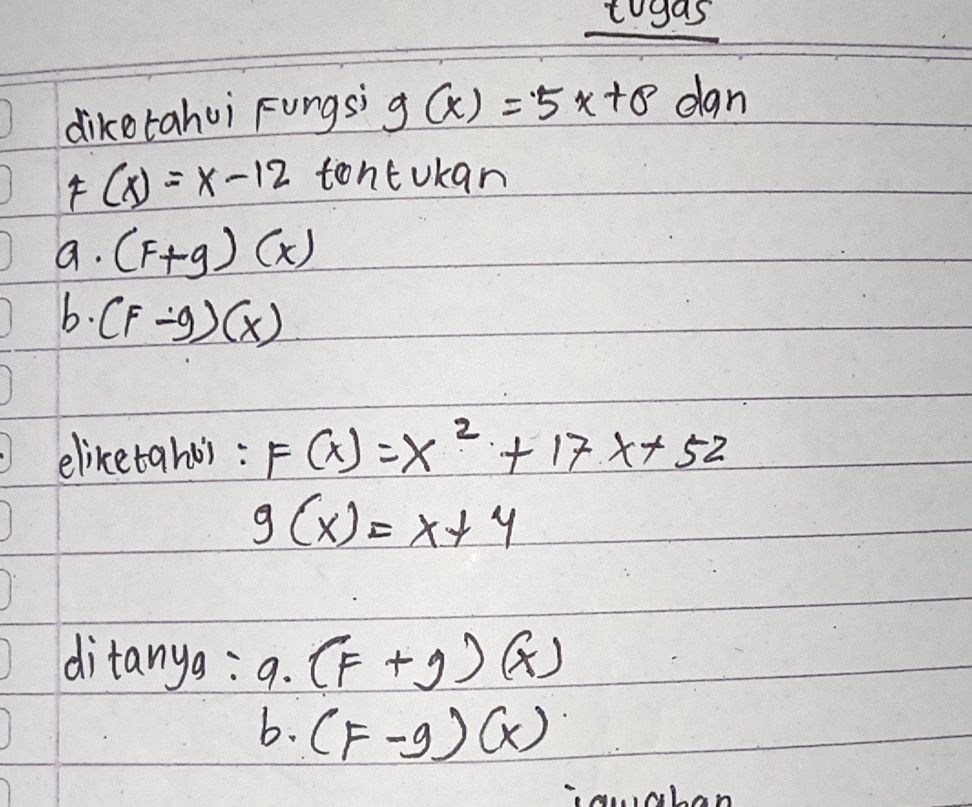 tugas
diketahui Fungsi g (x) = 5x+8 dan
F (x) = x-12 tentukan
a. (F+g) (x)
b. (F-g)(x)
diketahui : F (x) = x² + 17x + 52
g (x) = x + 4
ditanya : a. (F + g) (x)
b. (F - g) (x)
jawaban